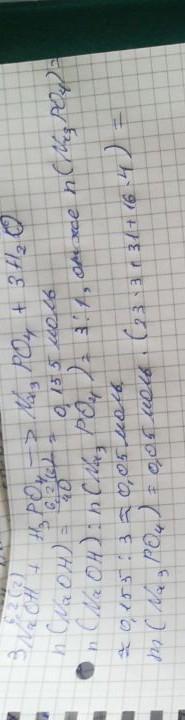 6,2 (г)
3NaOH + H₃PO₄ → Na₃PO₄ + 3H₂O
n(NaOH) = 6,2(г)/40 = 0,155 моль
n(NaOH) : n(Na₃PO₄) = 3:1, отже n(Na₃PO₄) =
≈ 0,155 : 3 ≈ 0,05 моль
m(Na₃PO₄) = 0,05 моль · (23·3+31+16·4) =